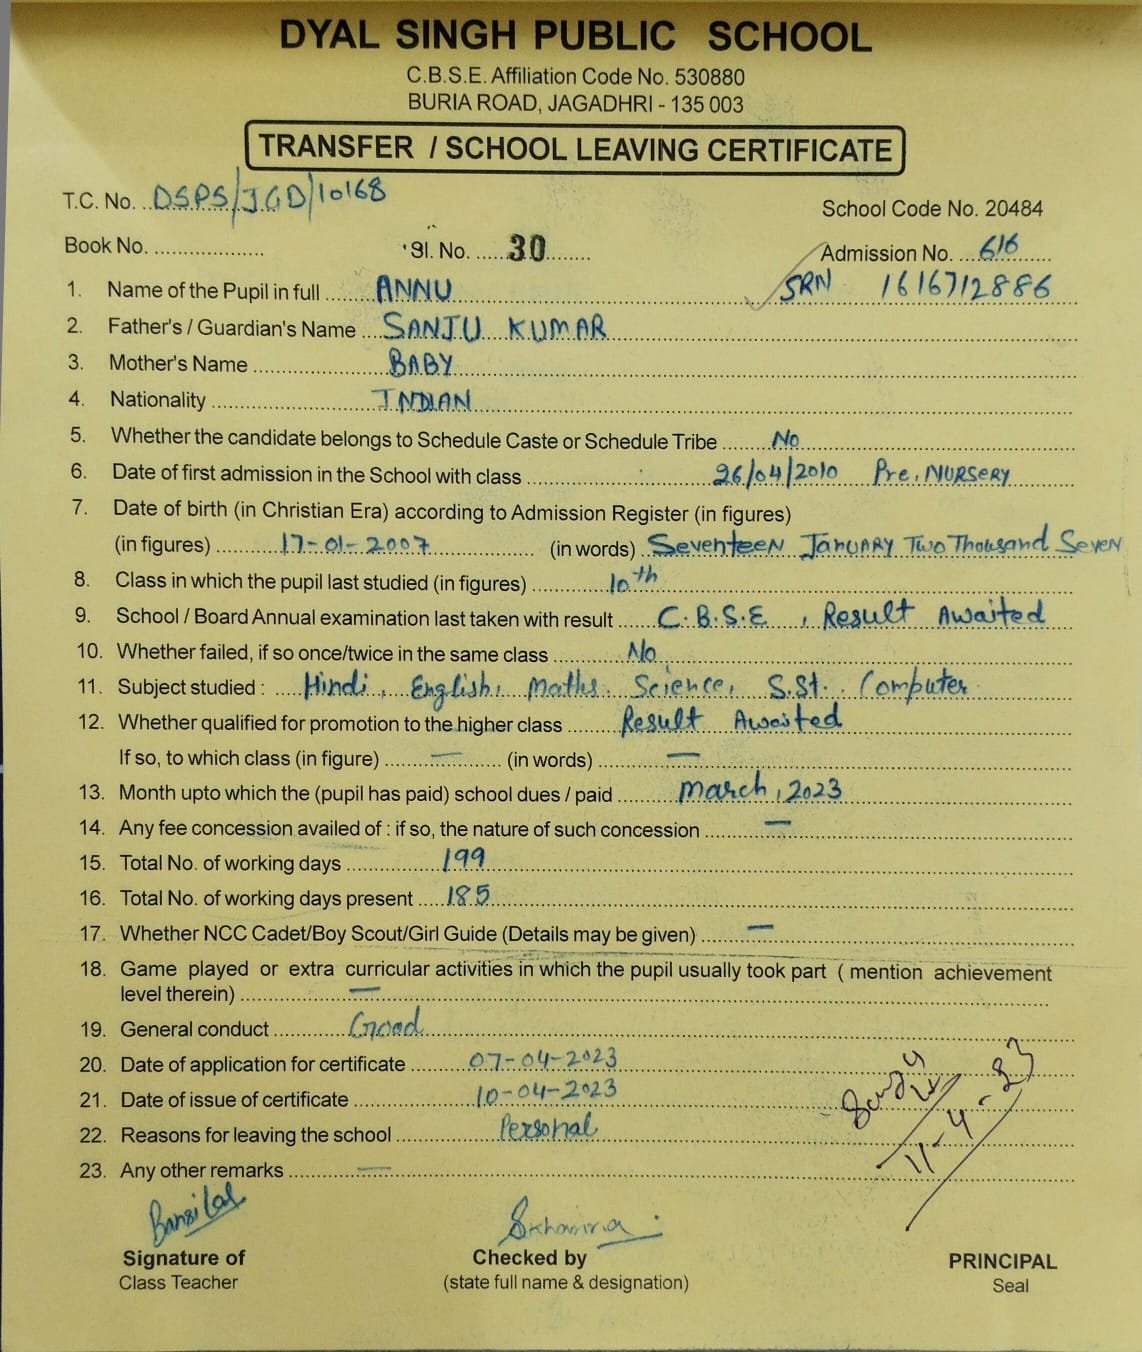 DYAL SINGH PUBLIC SCHOOL
C.B.S.E. Affiliation Code No. 530880
BURIA ROAD, JAGADHRI - 135 003
TRANSFER / SCHOOL LEAVING CERTIFICATE
T.C. No. DSPS/JGD/10168
School Code No. 20484
Book No. ................... Sl. No. 30 Admission No. 616
1. Name of the Pupil in full ANNU SRN 1616712886
2. Father's / Guardian's Name SANJU KUMAR
3. Mother's Name BABY
4. Nationality INDIAN
5. Whether the candidate belongs to Schedule Caste or Schedule Tribe No
6. Date of first admission in the School with class 26/04/2010 Pre. NURSERY
7. Date of birth (in Christian Era) according to Admission Register (in figures)
(in figures) 17-01-2007 (in words) Seventeen January Two Thousand Seven
8. Class in which the pupil last studied (in figures) 10th
9. School / Board Annual examination last taken with result C.B.S.E , Result Awaited
10. Whether failed, if so once/twice in the same class No
11. Subject studied : Hindi, English, Maths. Science, S.St. Computer
12. Whether qualified for promotion to the higher class Result Awaited
If so, to which class (in figure) — (in words) —
13. Month upto which the (pupil has paid) school dues / paid March, 2023
14. Any fee concession availed of : if so, the nature of such concession —
15. Total No. of working days 199
16. Total No. of working days present 185
17. Whether NCC Cadet/Boy Scout/Girl Guide (Details may be given) —
18. Game played or extra curricular activities in which the pupil usually took part ( mention achievement
level therein) —
19. General conduct Good
20. Date of application for certificate 07-04-2023
21. Date of issue of certificate 10-04-2023
22. Reasons for leaving the school Personal
23. Any other remarks —
11-4-23
Bansi Lal
Skhanna
Signature of Checked by PRINCIPAL
Class Teacher (state full name & designation) Seal